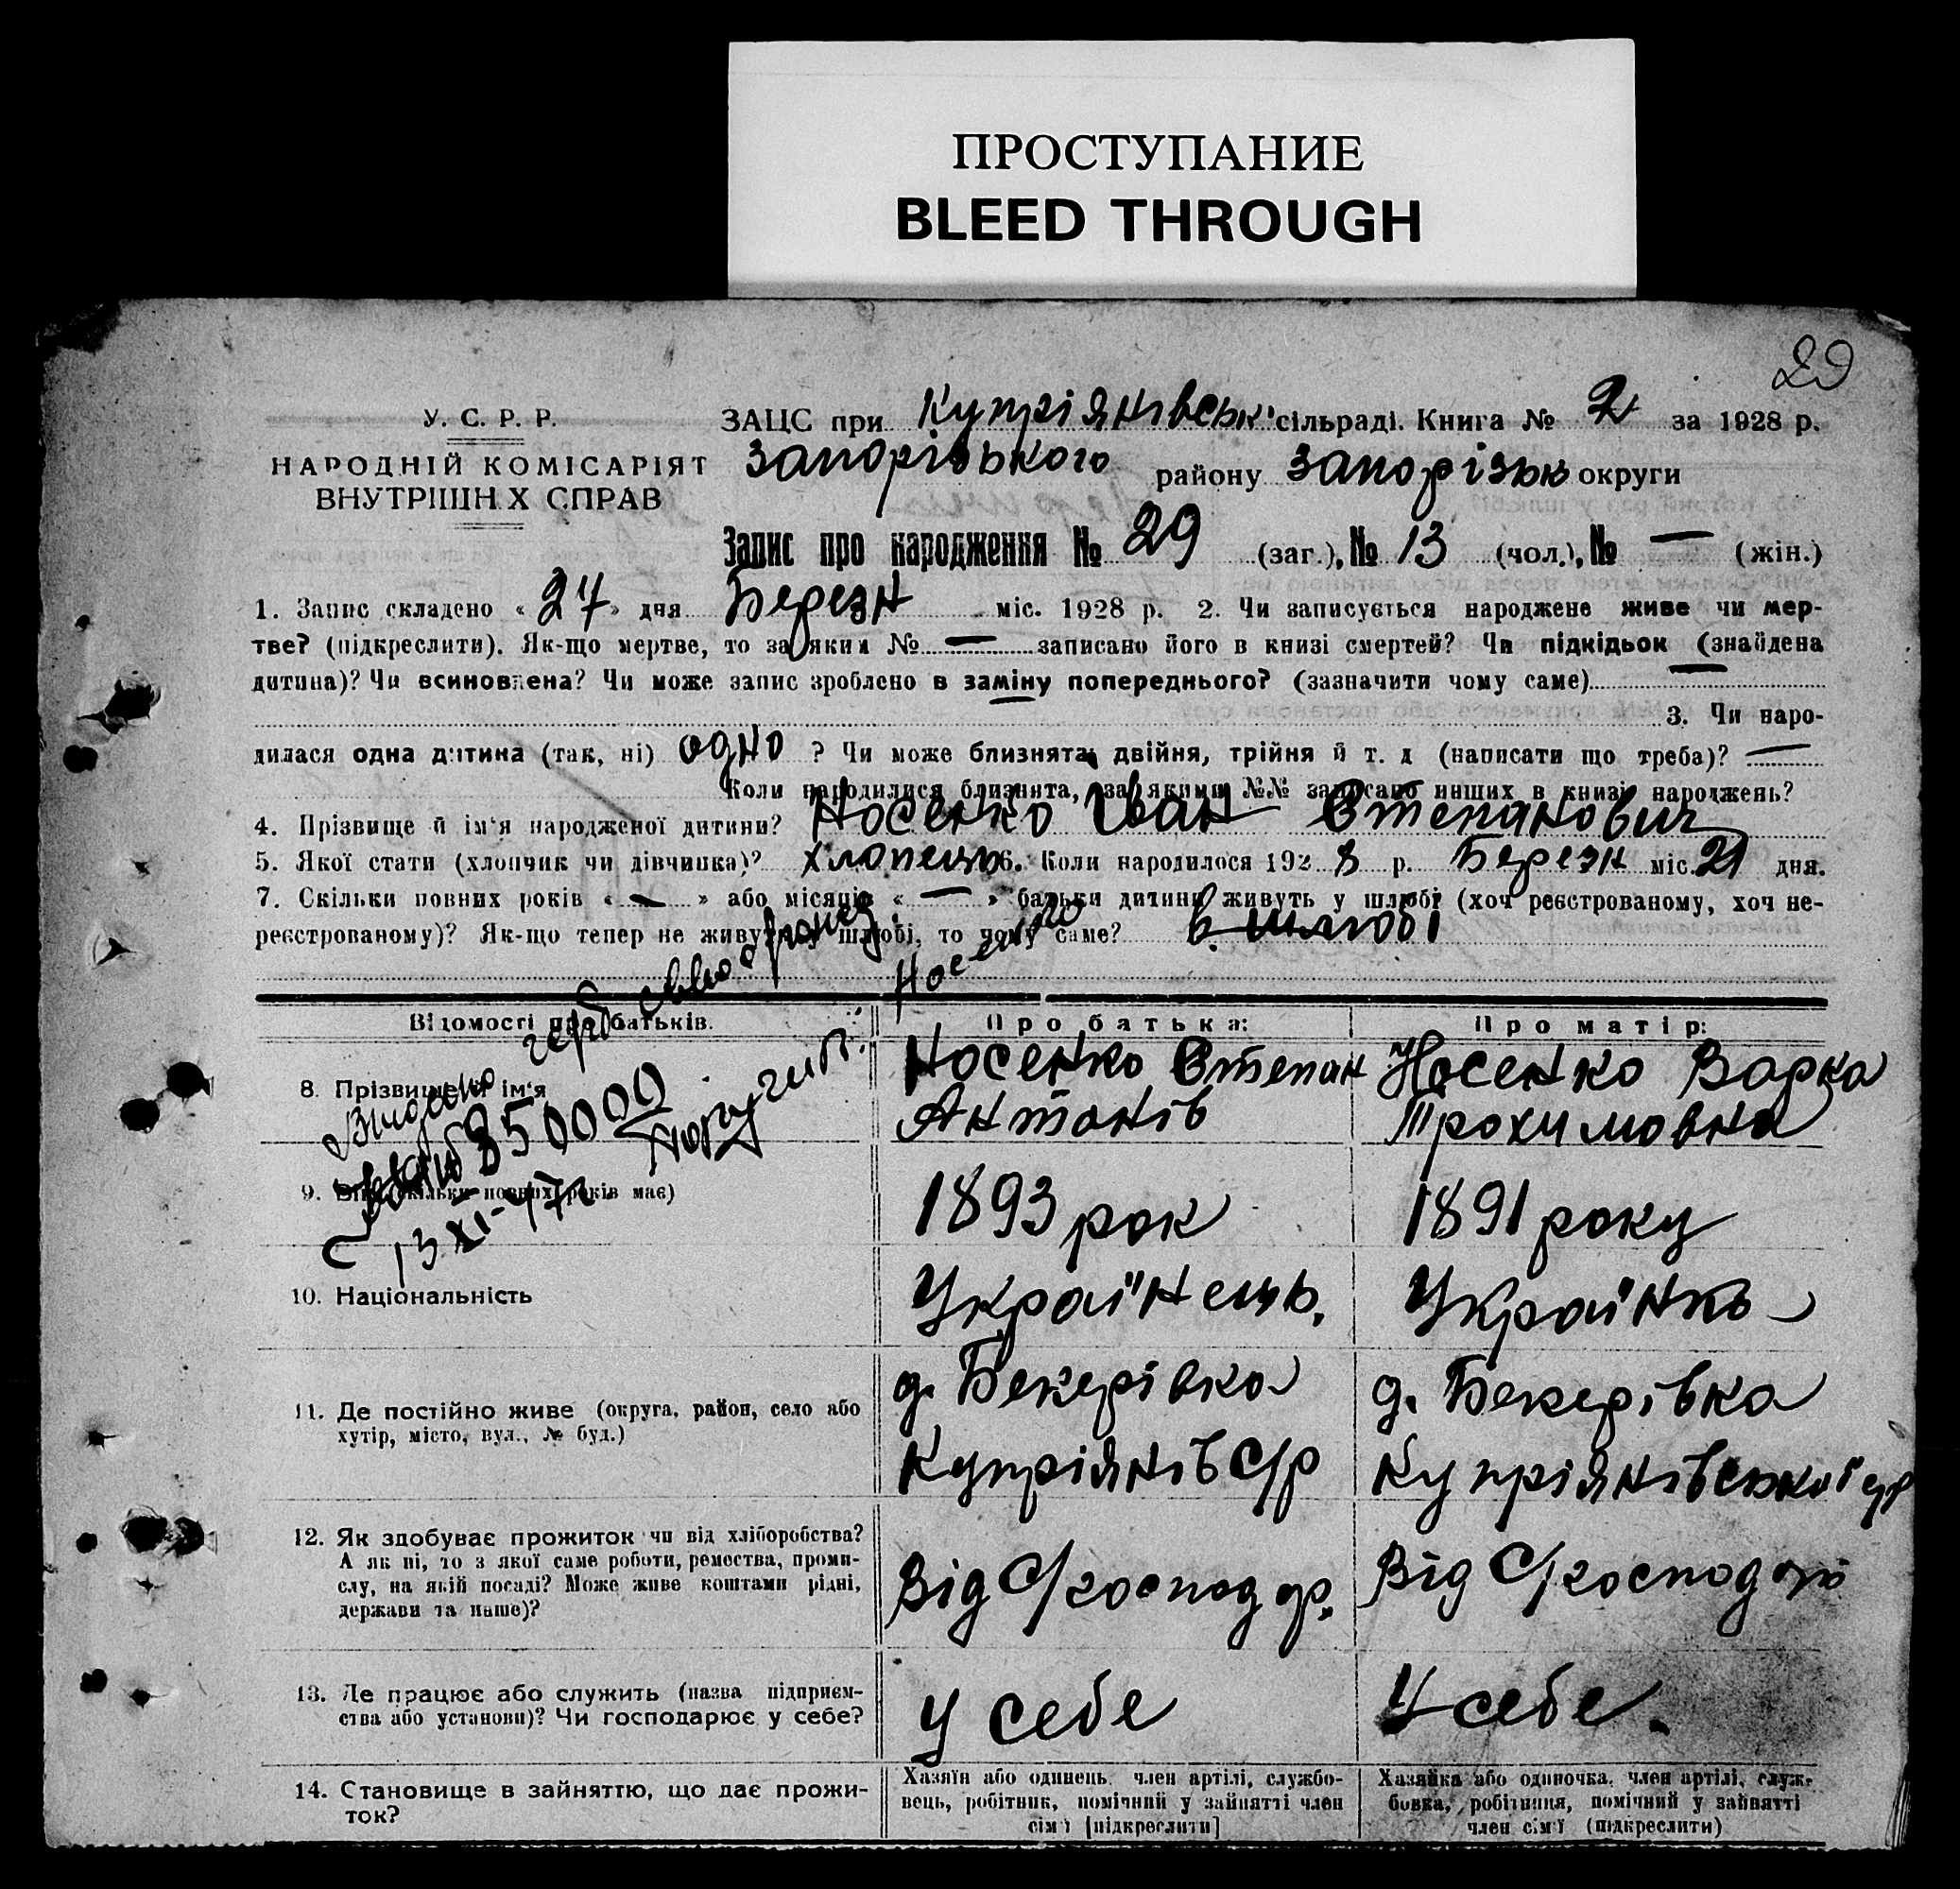 ПРОСТУПАНИЕ
BLEED THROUGH
29
У. С. Р. Р.
НАРОДНІЙ КОМІСАРІЯТ
ВНУТРІШН Х СПРАВ
ЗАЦС при Купріянівськ сільраді. Книга № 2 за 1928 р.
Запорізького району Запорізьк округи
Запис про народження № 29 (заг.), № 13 (чол.), № — (жін.)
1. Запис складено « 27 » дня Березн міс. 1928 р. 2. Чи записується народжене живе чи мер-
тве? (підкреслити). Як-що мертве, то за яким № — записано його в книзі смертей? Чи підкідьок (знайдена
дитина)? Чи всиновлена? Чи може запис зроблено в заміну попереднього? (зазначити чому саме) —
3. Чи наро-
дилася одна дитина (так, ні) одно ? Чи може близнята, двійня, трійня й т. д (написати що треба)? —
Коли народилися близнята, за якими №№ записано инших в книзі народжень?
4. Прізвище й ім'я народженої дитини? Носенко Іван Степанович
5. Якої стати (хлопчик чи дівчинка)? хлопець 6. Коли народилося 1928 р. Березн міс. 21 дня.
7. Скільки повних років « — » або місяців « — » батьки дитини живуть у шлюбі (хоч реєстрованому, хоч не-
реєстрованому)? Як-що тепер не живуть у шлюбі, то чому саме? в шлюбі
Відомості про батьків. Про батька: Про матір:
Видано герб свво
Носенко
850000
13 XI-47г.
8. Прізвище й ім'я Носенко Степан Носенко Варка
Антонів Трохимовна
9. Вік (скільки повних років має) 1893 рок 1891 року
10. Національність Українець. Українкь
11. Де постійно живе (округа, район, село або д. Бекерівка д. Бекерівка
хутір, місто, вул., № буд.) Купріянів С/р Купріянівської с/р
12. Як здобуває прожиток чи від хліборобства?
А як ні, то з якої саме роботи, ремества, проми- Від С/господр. Від С/господ
слу, на якій посаді? Може живе коштами рідні,
держави та инше)?
13. Де працює або служить (назва підприєм- у себе У себе.
ства або установи)? Чи господарює у себе?
14. Становище в зайняттю, що дає прожи- Хазяїн або одинець, член артілі, службо- Хазяйка або одиночка, член артілі, служ-
ток? вець, робітник, помічний у зайнятті член бовка, робітниця, помічний у зайнятті
сім'ї [підкреслити] член сім'ї (підкреслити)